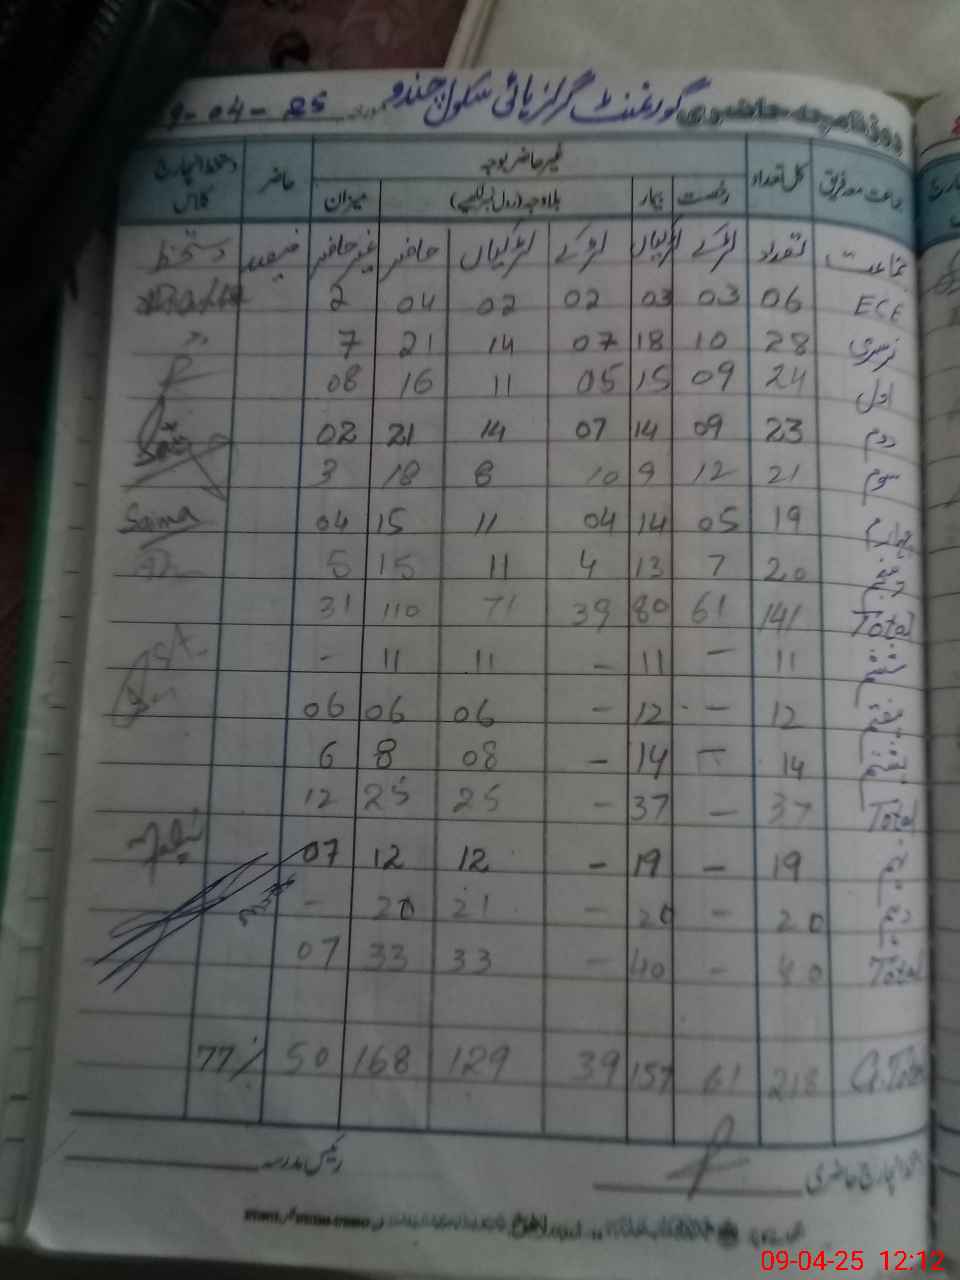 گورنمنٹ گرلز ہائی سکول چندو 9-04-25
روزنامچہ حاضری
غیر حاضر بوجہ
جماعت معہ فریق کل تعداد رخصت بیمار بلا وجہ (رول نمبر لکھیے) میزان حاضر دستخط انچارج کلاس
جماعت تعداد لڑکے لڑکیاں لڑکے لڑکیاں حاضر غیر حاضر فیصد دستخط
ECE 06 03 03 02 02 04 2
نرسری 28 10 18 07 14 21 7
اول 24 09 15 05 11 16 08
دوم 23 09 14 07 14 21 02
سوم 21 12 9 10 8 18 3
چہارم 19 05 14 04 11 15 04 Saima
پنجم 20 7 13 4 11 15 5
Total 141 61 80 39 71 110 31
ششم 11 – 11 – 11 11 –
ہفتم 12 – 12 – 06 06 06
ہشتم 14 – 14 – 08 8 6
Total 37 – 37 – 25 25 12
نہم 19 – 19 – 12 12 07
دہم 20 – 20 – 21 20 –
Total 40 – 40 – 33 33 07
G.Total 218 61 157 39 129 168 50 77%
دستخط انچارج حاضری رئیس مدرسہ
09-04-25 12:12